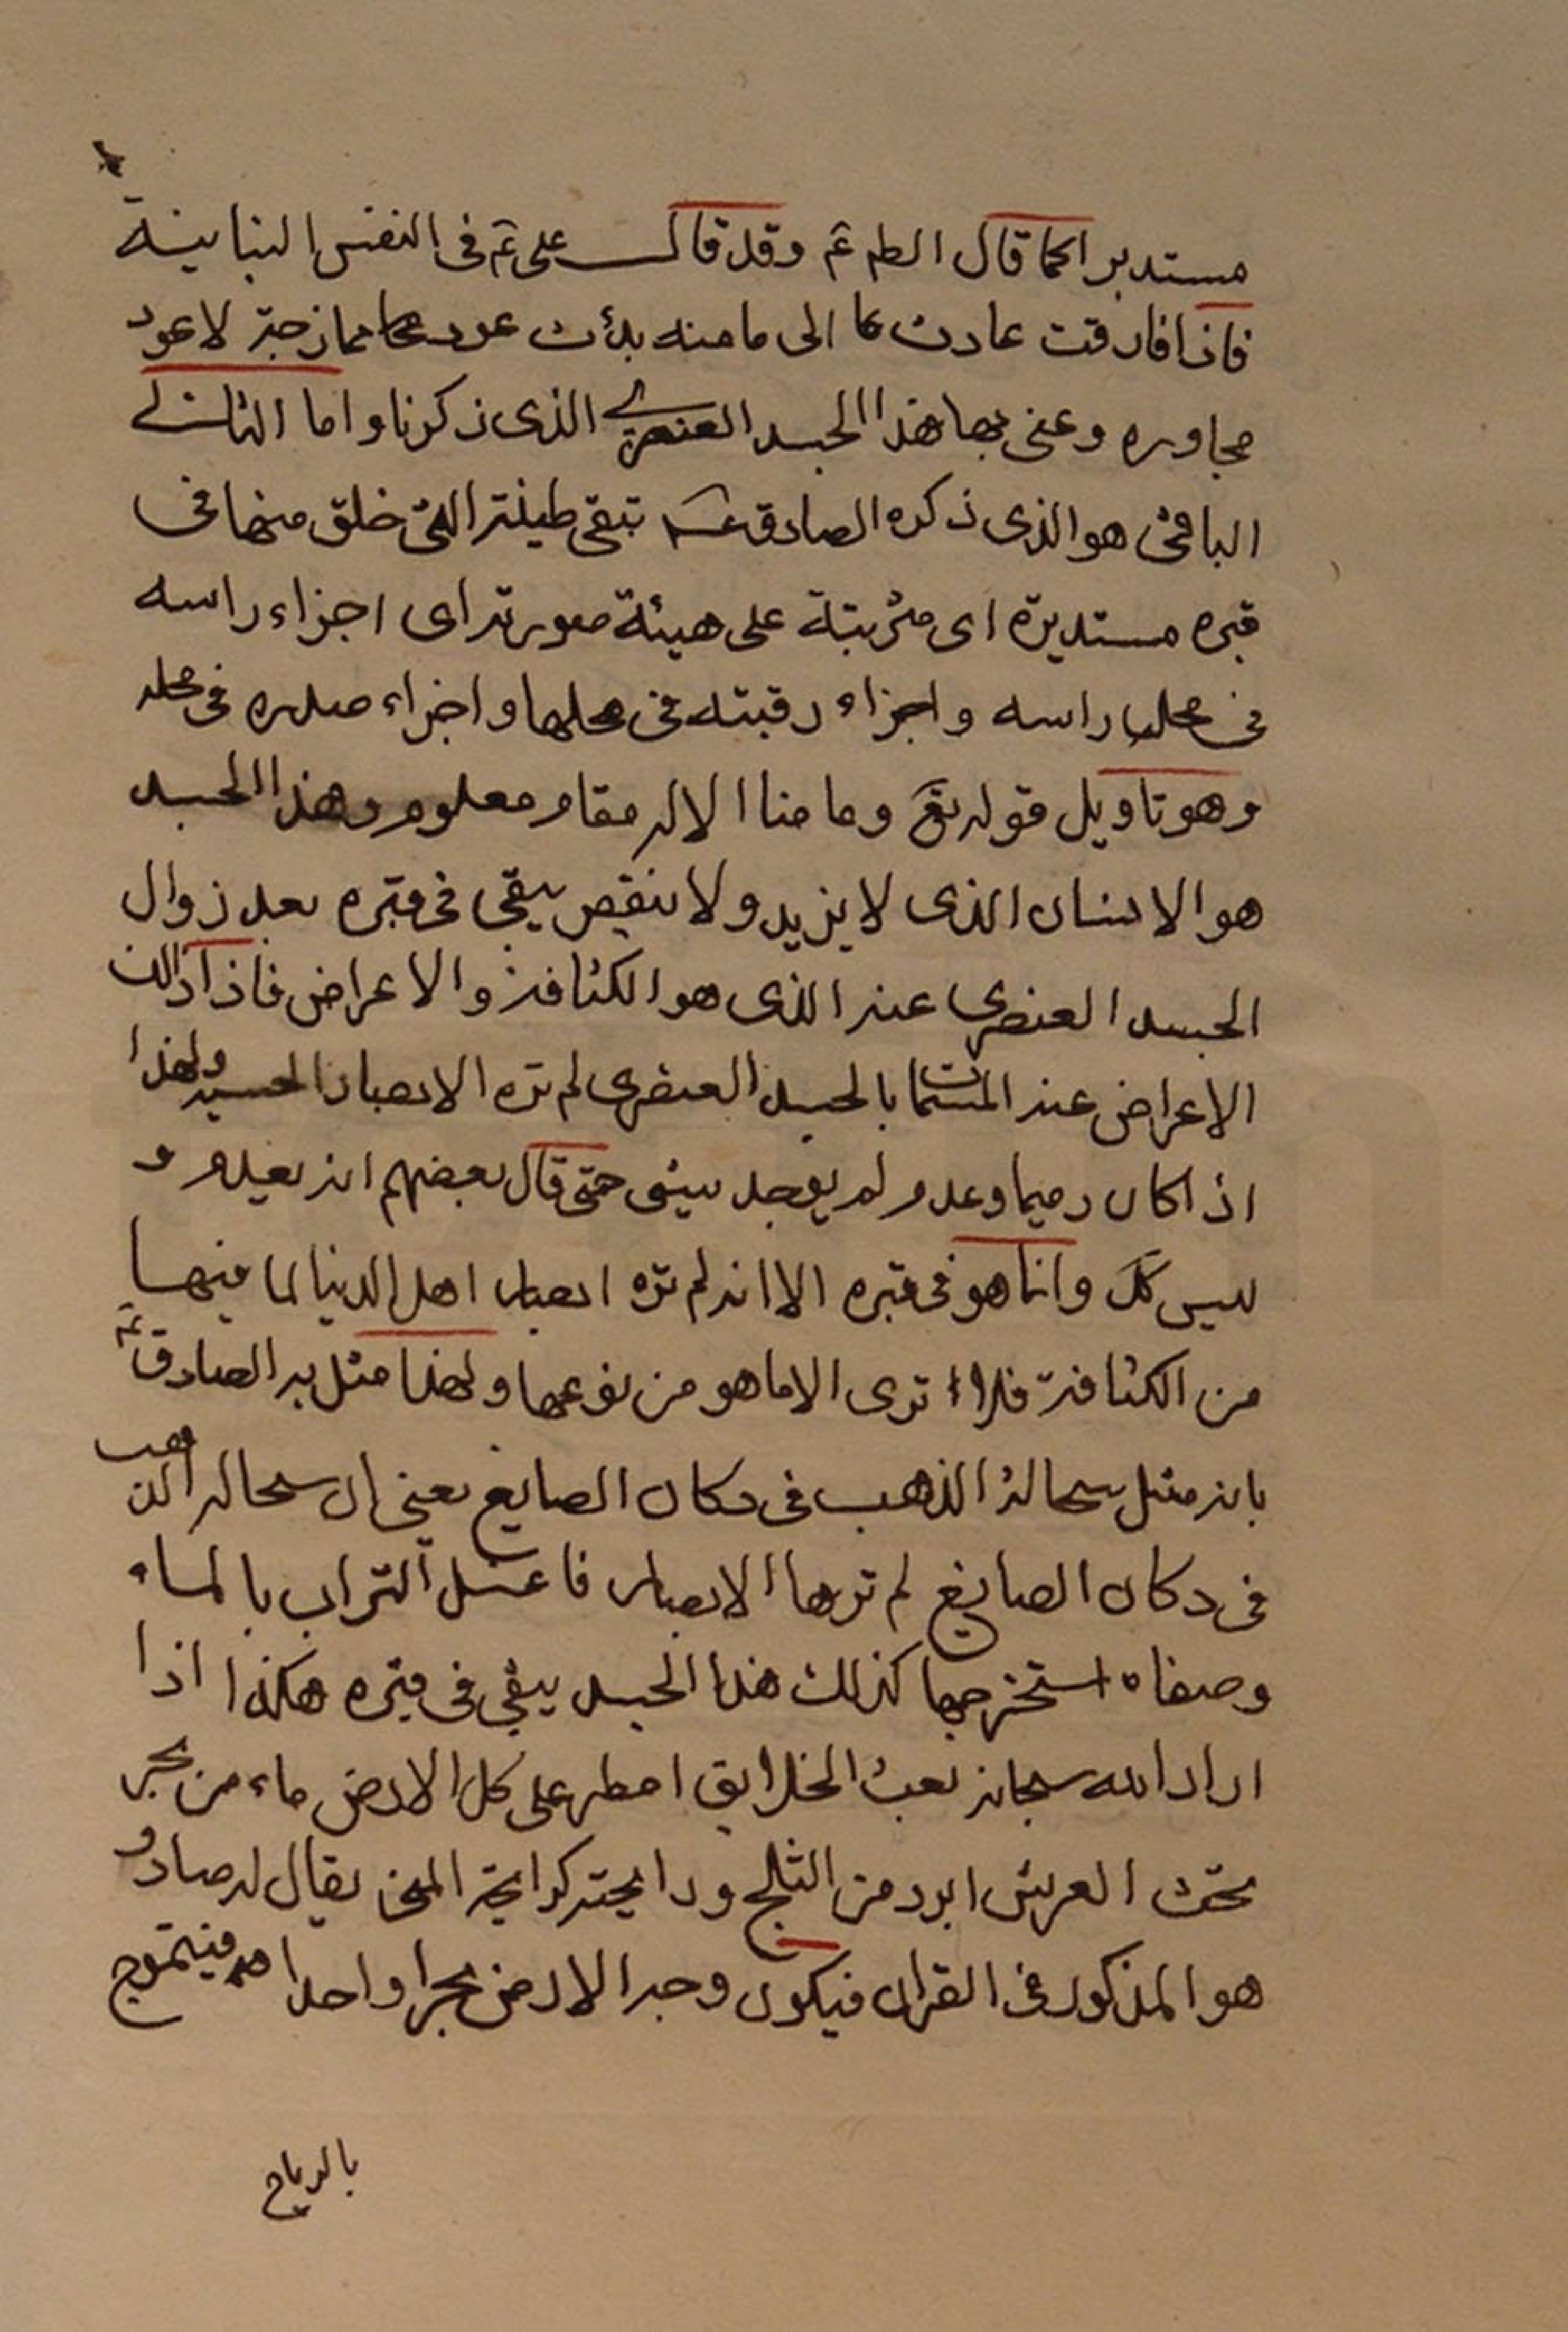 مستديرا كما قال الصم عم وقد قال على عم فى النفس النباتية
فاذا فارقت عادت الى ما منه بدأت عود ممازجة لا عود
مجاوره وعنى بها هذا الجسد العنصرى الذى ذكرنا واما الثانى
الباقى هو الذى ذكره الصادق ع تبقى طينته التى خلق منها فى
قبره مستديرة اى مترتبة على هيئة صورته اى اجزاء راسه
فى محل راسه واجزاء رقبته فى محلها واجزاء صدره فى محله
وهو تاويل قوله تع وما منا الا له مقام معلوم وهذا الجسد
هو الانسان الذى لا يزيد ولا ينقص يبقى فى قبره بعد زوال
الجسد العنصرى عنه الذى هو الكثافة والاعراض فاذا زالت
الاعراض عنه المسماة بالجسد العنصرى لم تره الابصار الحسية ولهذا
اذا كان رميما وعدم لم يوجد شئ حتى قال بعضهم انه يعدم و
ليس كك وانما هو فى قبره الا انه لم تره ابصار اهل الدنيا لما فيها
من الكثافة فلا ترى الا ما هو من نوعها ولهذا مثل به الصادق عم
بانه مثل سحالة الذهب فى دكان الصايغ يعنى ان سحالة الذهب
فى دكان الصايغ لم ترها الابصار فاذا غسل التراب بالماء
وصفاه استخرجها كذلك هذا الجسد يبقى فى قبره هكذا اذا
اراد الله سبحانه بعث الخلايق امطر على كل الارض ماء من بحر
تحت العرش ابرد من الثلج ورايحته كرايحة المنى يقال له صاد و
هو المذكور فى القران فيكون وجه الارض بحرا واحدا فيتموج
بالرياح